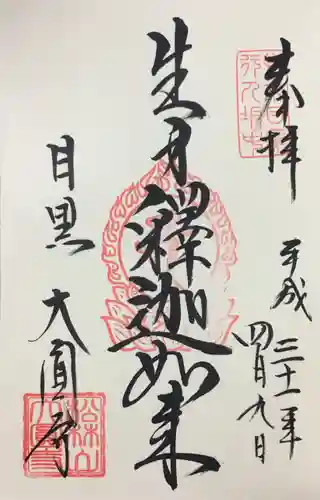 奉拝
平成三十一年
四月九日
生身釋迦如来
目黒
大圓寺